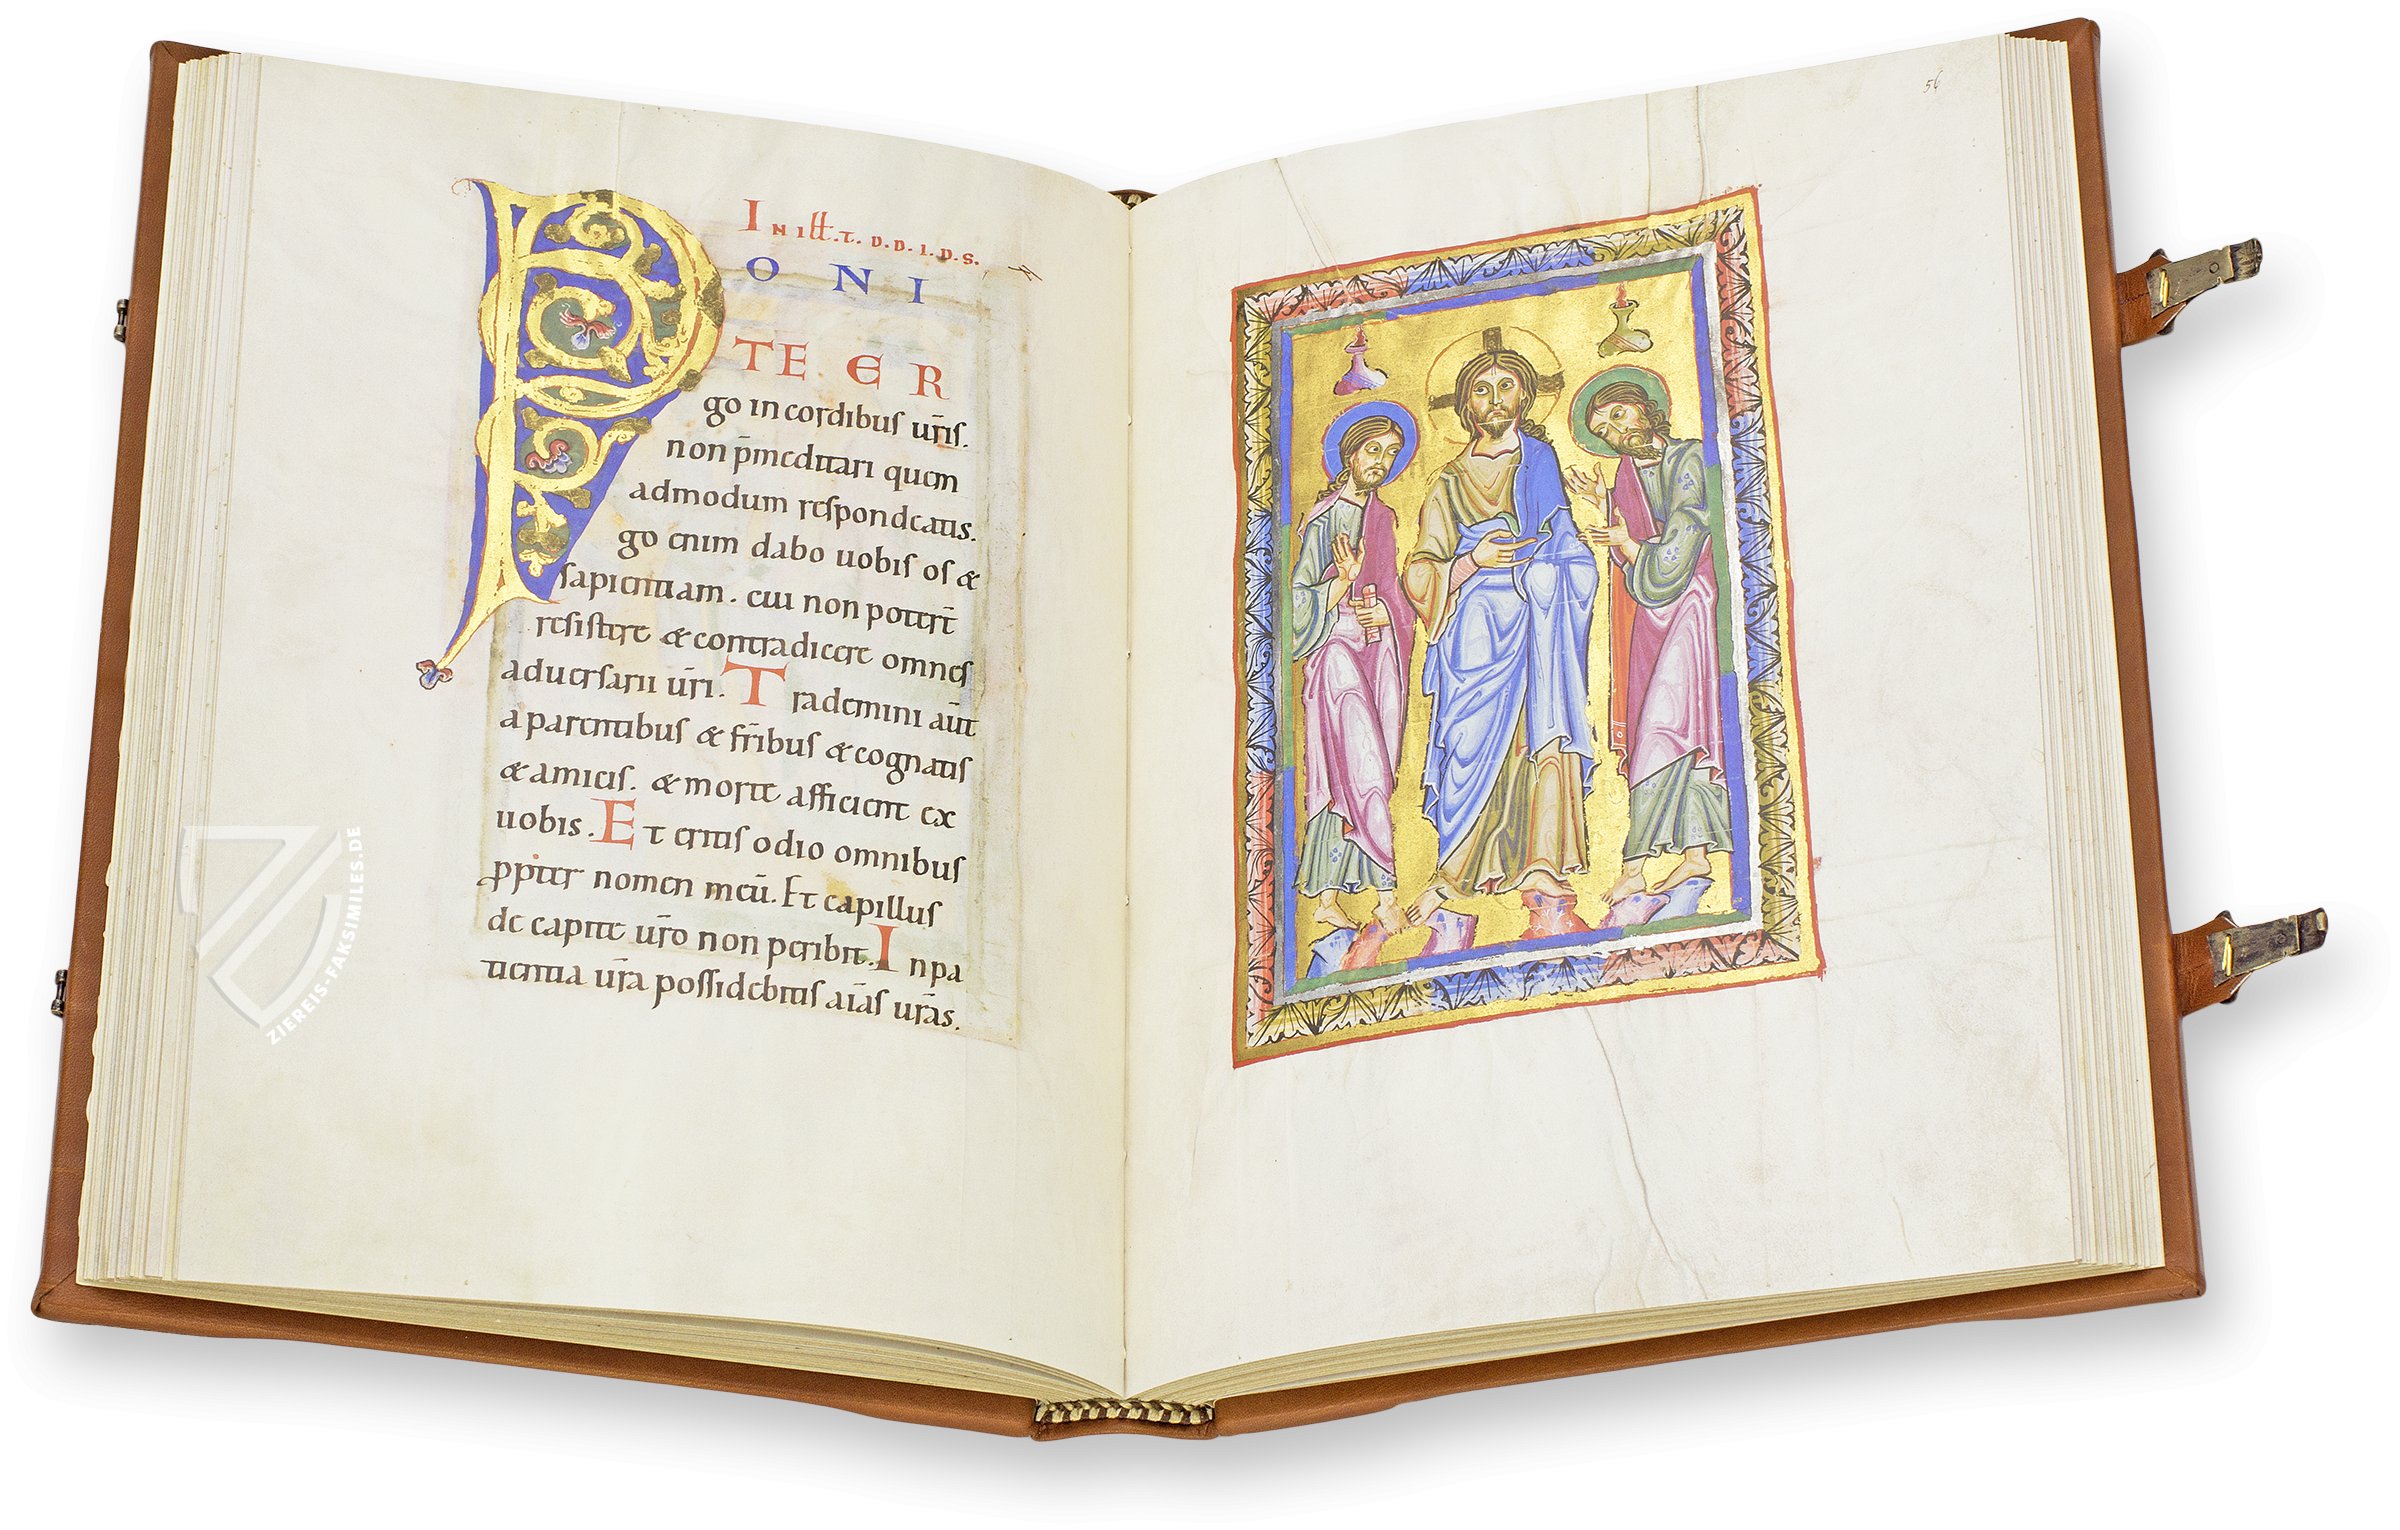 IN ILLT. T. D. D. I. D. S.
P ONI
TE ER
go in cordibuſ ur̄iſ.
non p̄meditari quem
admodum reſpondeatis.
go enim dabo uobiſ oſ &
ſapientiam. cui non poterīt
reſiſtere & contradicere omneſ
aduerſarii ur̄i. Trademini aūt
a parentibuſ & fr̄ibuſ & cognatiſ
& amiciſ. & morte afficient ex
uobiſ. Et eritiſ odio omnibuſ
ppter nomen meū. Et capilluſ
de capite ur̄o non peribit. In pa
tientia ur̄a poſſidebitiſ aīaſ ur̄aſ.
56
ZIEREIS-FAKSIMILES.DE